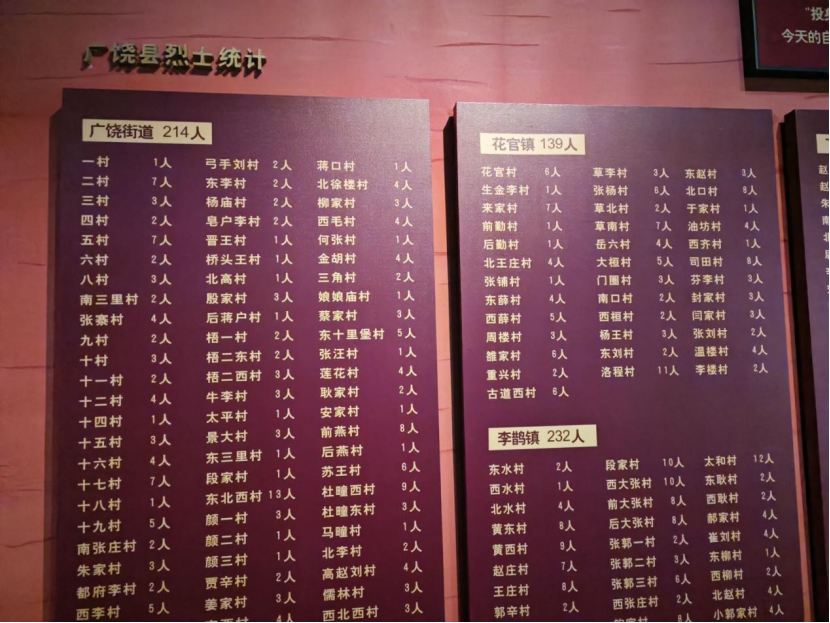 广饶县烈士统计
"投身
今天的自
广饶街道 214人
一村 1人 弓手刘村 2人 蒋口村 1人
二村 7人 东李村 2人 北徐楼村 4人
三村 3人 杨庙村 2人 柳家村 3人
四村 2人 皂户李村 2人 西毛村 4人
五村 7人 晋王村 1人 何张村 1人
六村 2人 桥头王村 1人 金胡村 4人
八村 3人 北高村 1人 三角村 2人
南三里村 2人 殷家村 3人 娘娘庙村 1人
张寨村 4人 后蒋户村 1人 蔡家村 3人
九村 2人 梧一村 2人 东十里堡村 5人
十村 3人 梧二东村 2人 张汪村 1人
十一村 2人 梧二西村 3人 莲花村 4人
十二村 4人 牛李村 3人 耿家村 2人
十四村 1人 太平村 1人 安家村 1人
十五村 3人 景大村 3人 前燕村 8人
十六村 4人 东三里村 1人 后燕村 1人
十七村 7人 段家村 1人 苏王村 6人
十八村 1人 东北西村 13人 杜疃西村 9人
十九村 5人 颜一村 3人 杜疃东村 3人
南张庄村 2人 颜二村 1人 马疃村 1人
朱家村 3人 颜三村 1人 北李村 2人
都府李村 2人 贾辛村 2人 高赵刘村 4人
西李村 5人 姜家村 3人 儒林村 3人
西北西村 3人
花官镇 139人
花官村 6人 草李村 3人 东赵村 3人
生金李村 1人 张杨村 6人 北口村 8人
来家村 7人 草北村 2人 于家村 1人
前勤村 1人 草南村 7人 油坊村 4人
后勤村 1人 岳六村 4人 西齐村 1人
北王庄村 4人 大桓村 5人 司田村 8人
张铺村 1人 门圈村 3人 芬李村 3人
东薛村 4人 南口村 2人 封家村 3人
西薛村 5人 西桓村 2人 闫家村 3人
周楼村 3人 杨王村 3人 张刘村 2人
雒家村 6人 东刘村 2人 温楼村 4人
重兴村 2人 洛程村 11人 李楼村 2人
古道西村 6人
李鹊镇 232人
东水村 2人 段家村 10人 太和村 12人
西水村 1人 西大张村 10人 东耿村 2人
北水村 4人 前大张村 8人 西耿村 2人
黄东村 8人 后大张村 8人 郝家村 4人
黄西村 9人 张郭一村 2人 崔刘村 4人
赵庄村 7人 张郭二村 3人 东柳村 1人
王庄村 8人 张郭三村 6人 西柳村 2人
郭辛村 2人 西张庄村 2人 北赵村 4人
8人 小郭家村 4人